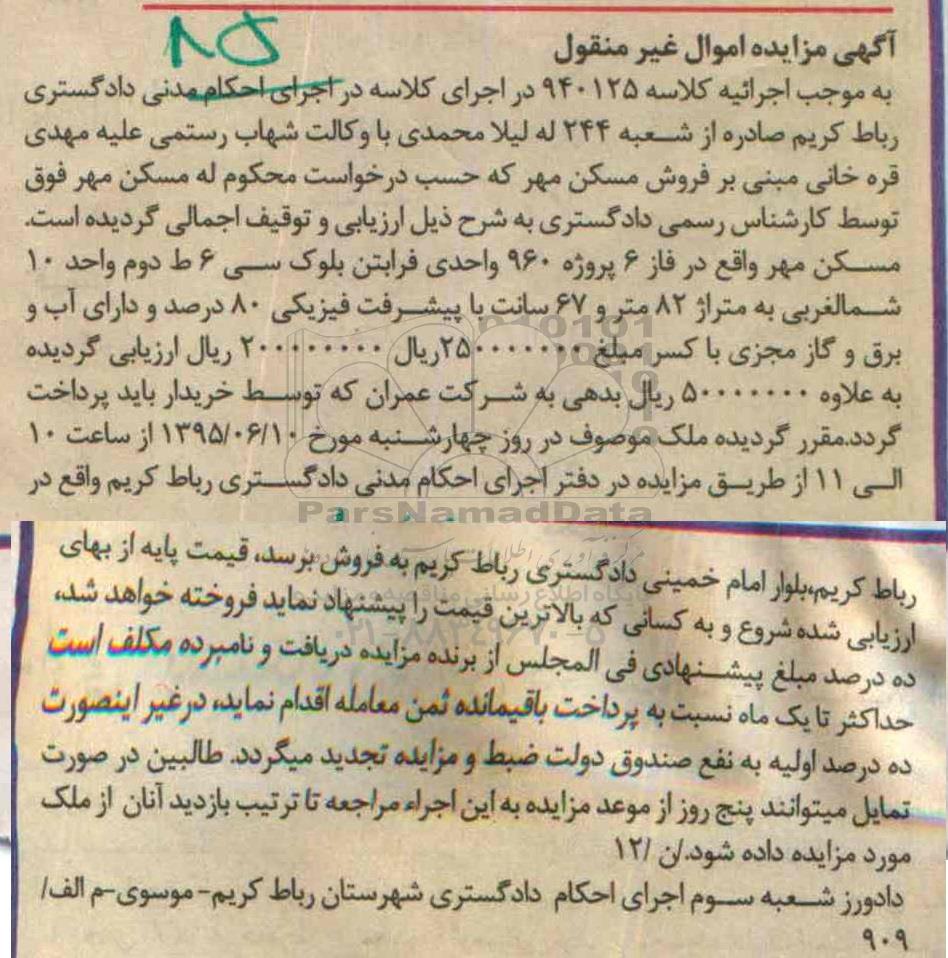 آگهی مزایده اموال غیر منقول
به موجب اجرائیه کلاسه ۹۴۰۱۲۵ در اجرای کلاسه در اجرای احکام مدنی دادگستری
رباط کریم صادره از شعبه ۲۴۴ له لیلا محمدی با وکالت شهاب رستمی علیه مهدی
قره خانی مبنی بر فروش مسکن مهر که حسب درخواست محکوم له مسکن مهر فوق
توسط کارشناس رسمی دادگستری به شرح ذیل ارزیابی و توقیف اجمالی گردیده است.
مسکن مهر واقع در فاز ۶ پروژه ۹۶۰ واحدی فرابتن بلوک سی ۶ ط دوم واحد ۱۰
شمالغربی به متراژ ۸۲ متر و ۶۷ سانت با پیشرفت فیزیکی ۸۰ درصد و دارای آب و
برق و گاز مجزی با کسر مبلغ ۲۵۰۰۰۰۰۰۰ریال ۲۰۰۰۰۰۰۰۰ ریال ارزیابی گردیده
به علاوه ۵۰۰۰۰۰۰۰ ریال بدهی به شرکت عمران که توسط خریدار باید پرداخت
گردد.مقرر گردیده ملک موصوف در روز چهارشنبه مورخ ۱۳۹۵/۰۶/۱۰ از ساعت ۱۰
الی ۱۱ از طریق مزایده در دفتر اجرای احکام مدنی دادگستری رباط کریم واقع در
ParsNamadData
رباط کریم،بلوار امام خمینی دادگستری رباط کریم به فروش برسد، قیمت پایه از بهای
پایگاه اطلاع رسانی مناقصه و مزایده
ارزیابی شده شروع و به کسانی که بالاترین قیمت را پیشنهاد نماید فروخته خواهد شد،
۰۲۱-۸۸۳۴۹۶۷۰-۵
ده درصد مبلغ پیشنهادی فی المجلس از برنده مزایده دریافت و نامبرده مکلف است
حداکثر تا یک ماه نسبت به پرداخت باقیمانده ثمن معامله اقدام نماید، در غیر اینصورت
ده درصد اولیه به نفع صندوق دولت ضبط و مزایده تجدید میگردد. طالبین در صورت
تمایل میتوانند پنج روز از موعد مزایده به این اجراء مراجعه تا ترتیب بازدید آنان از ملک
مورد مزایده داده شود./ن /۱۲
دادورز شعبه سوم اجرای احکام دادگستری شهرستان رباط کریم- موسوی-م الف/
۹۰۹